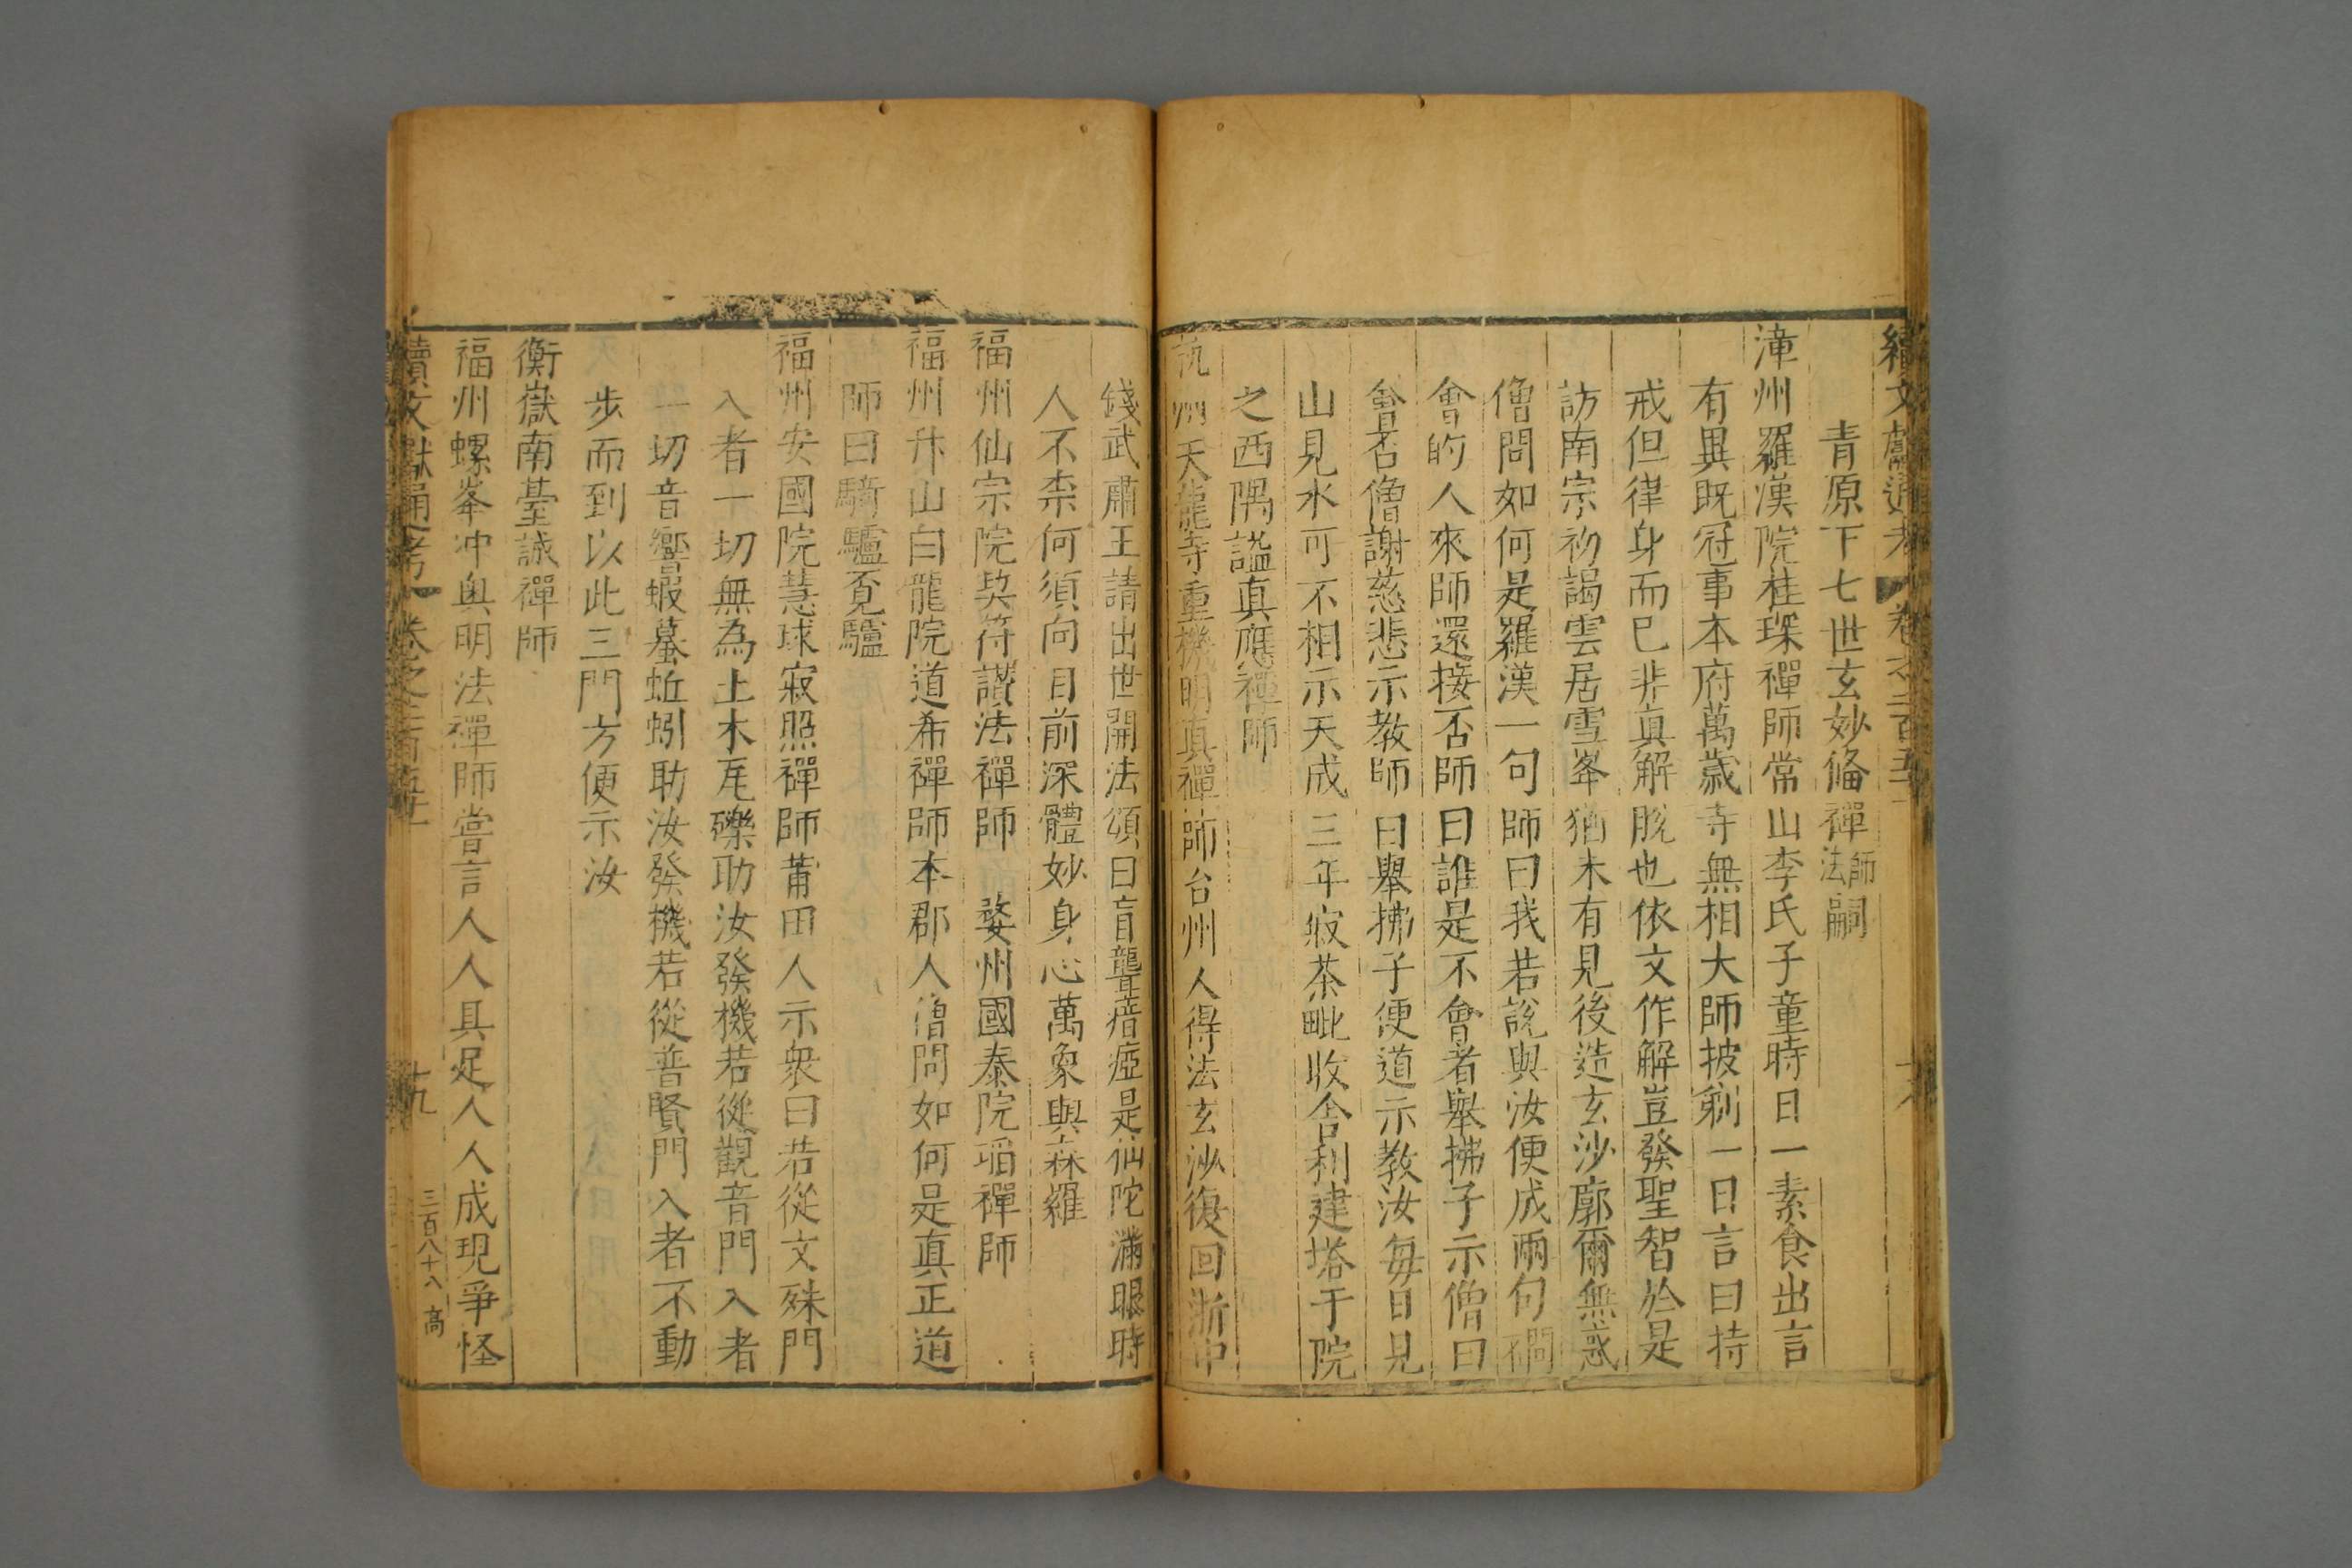 續文獻通考 卷之二百五
青原下七世玄妙俻禪師法嗣
漳州羅漢院桂琛禪師常山李氏子童時日一素食出言
有異既冠事本府萬歲寺無相大師披剃一日言曰持
戒但律身而巳非真解脫也依文作解豈發聖智於是
訪南宗初謁雲居雪峯猶未有見後造玄沙廓爾無惑
僧問如何是羅漢一句師曰我若說與汝便成兩句問
會的人來師還接否師曰誰是不會者舉拂子示僧曰
會否僧謝慈悲示教師曰舉拂子便道示教汝每日見
山見水可不相示天成三年寂荼毗收舍利建塔于院
之西隅謚真應禪師
杭州天龍寺重機明真禪師台州人得法玄沙復回浙中
錢武肅王請出世開法頌曰盲聾瘖瘂是仙陀滿眼時
人不柰何須向目前深體妙身心萬象與森羅
福州仙宗院契符謮法禪師 婺州國泰院瑫禪師
福州升山白龍院道希禪師本郡人僧問如何是真正道
師曰騎驢覓驢
福州安國院慧球寂照禪師莆田人示衆曰若從文殊門
入者一切無為土木瓦礫助汝發機若從觀音門入者
一切音響蝦蟇蚯蚓助汝發機若從普賢門入者不動
步而到以此三門方便示汝
衡嶽南臺誠禪師
福州螺峯冲奥明法禪師嘗言人人具足人人成現爭怪
續文獻通考 卷之二百五 十九
三百八十八 高